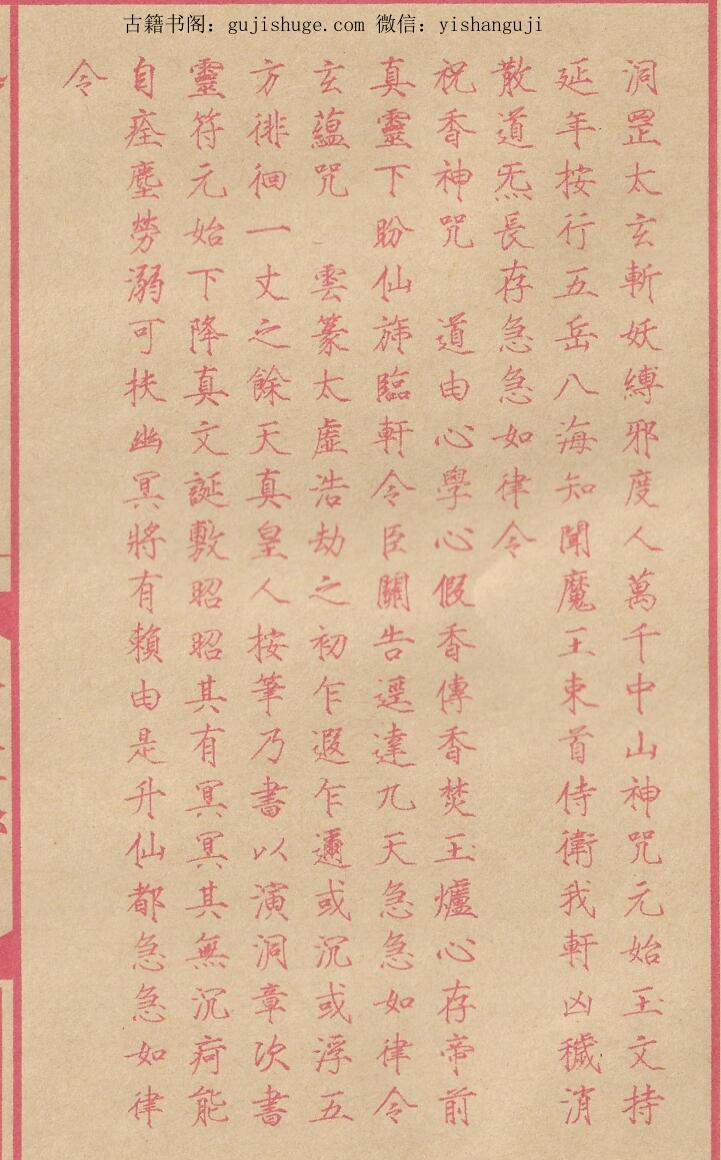 古籍书阁：gujishuge.com 微信：yishanguji
洞罡太玄斬妖縛邪度人萬千中山神咒元始玉文持
延年按行五岳八海知聞魔王束首侍衛我軒凶穢消
散道炁長存急急如律令
祝香神咒　道由心學心假香傳香焚玉爐心存帝前
真靈下盼仙旆臨軒令臣關告逕達九天急急如律令
玄蘊咒　雲篆太虛浩劫之初乍遐乍邇或沉或浮五
方徘徊一丈之餘天真皇人按筆乃書以演洞章次書
靈符元始下降真文誕敷昭昭其有冥冥其無沉痾能
自痊塵勞溺可扶幽冥將有賴由是升仙都急急如律
令